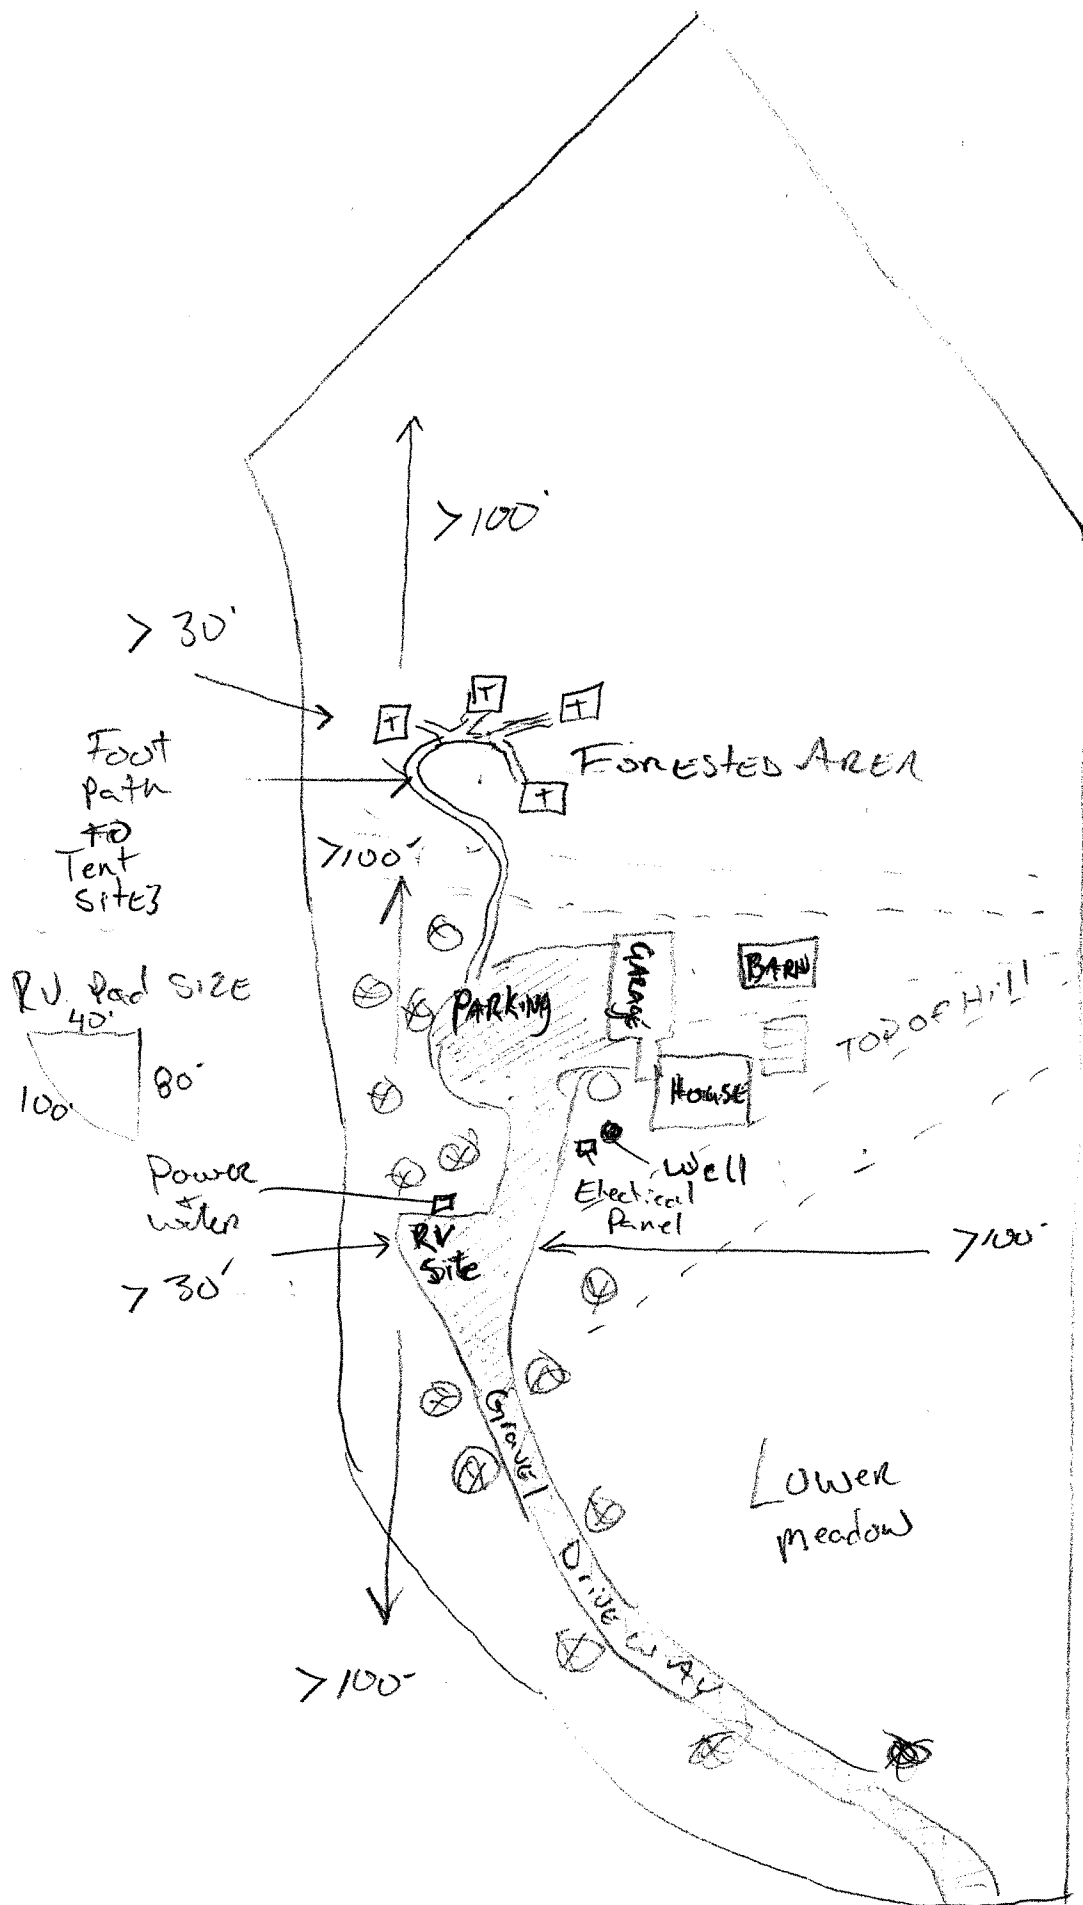 >100'
> 30'
T
T
T
T
Foot
Path
to
Tent
Sites
FORESTED AREA
>100'
RV Pad SIZE
40'
80'
100'
PARKING
GARAGE
BARN
TOP OF Hill
HOUSE
Well
Electrical
Panel
Power
+
water
RV
Site
>100'
> 30'
Gravel
Drive way
Lower
meadow
>100'